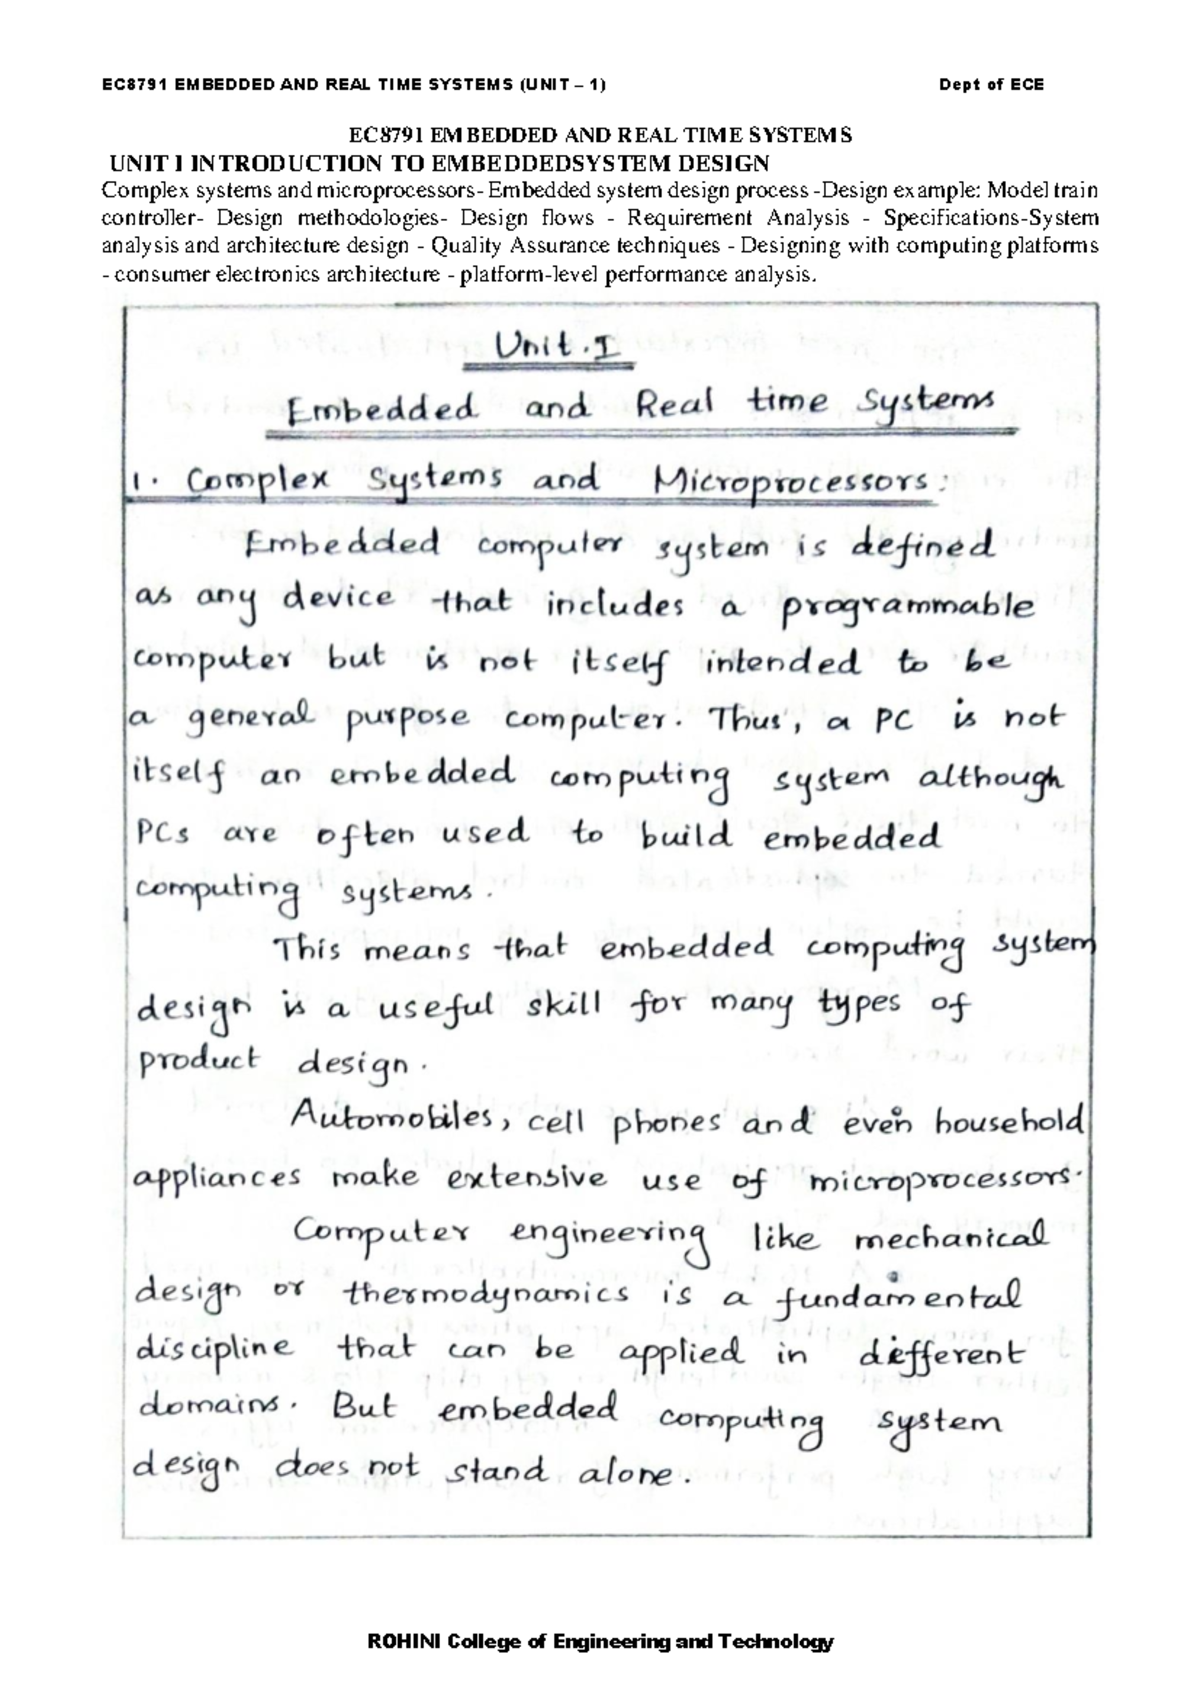 EC8791 EMBEDDED AND REAL TIME SYSTEMS (UNIT – 1) Dept of ECE
EC8791 EMBEDDED AND REAL TIME SYSTEMS
UNIT I INTRODUCTION TO EMBEDDEDSYSTEM DESIGN
Complex systems and microprocessors- Embedded system design process -Design example: Model train
controller- Design methodologies- Design flows - Requirement Analysis - Specifications-System
analysis and architecture design - Quality Assurance techniques - Designing with computing platforms
- consumer electronics architecture - platform-level performance analysis.
Unit.I
Embedded and Real time Systems
1. Complex Systems and Microprocessors:
Embedded computer system is defined
as any device that includes a programmable
computer but is not itself intended to be
a general purpose computer. Thus, a PC is not
itself an embedded computing system although
PCs are often used to build embedded
computing systems.
This means that embedded computing system
design is a useful skill for many types of
product design.
Automobiles, cell phones and even household
appliances make extensive use of microprocessors.
Computer engineering like mechanical
design or thermodynamics is a fundamental
discipline that can be applied in different
domains. But embedded computing system
design does not stand alone.
ROHINI College of Engineering and Technology